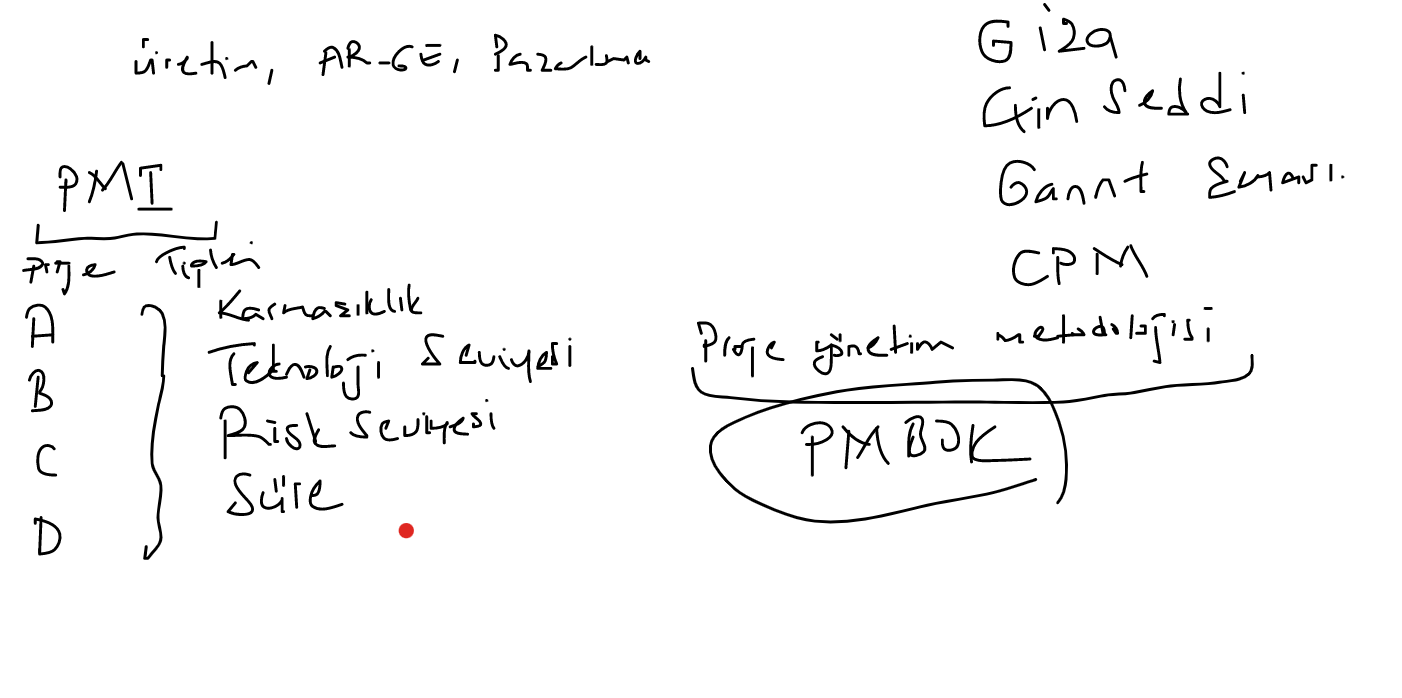 üretim, AR-GE, Pazarlama
PMI
Proje Tipleri
A
B
C
D
Karmaşıklık
Teknoloji Seviyesi
Risk Seviyesi
Süre
Giza
Çin Seddi
Gannt Şeması.
CPM
Proje yönetim metodolojisi
PMBOK